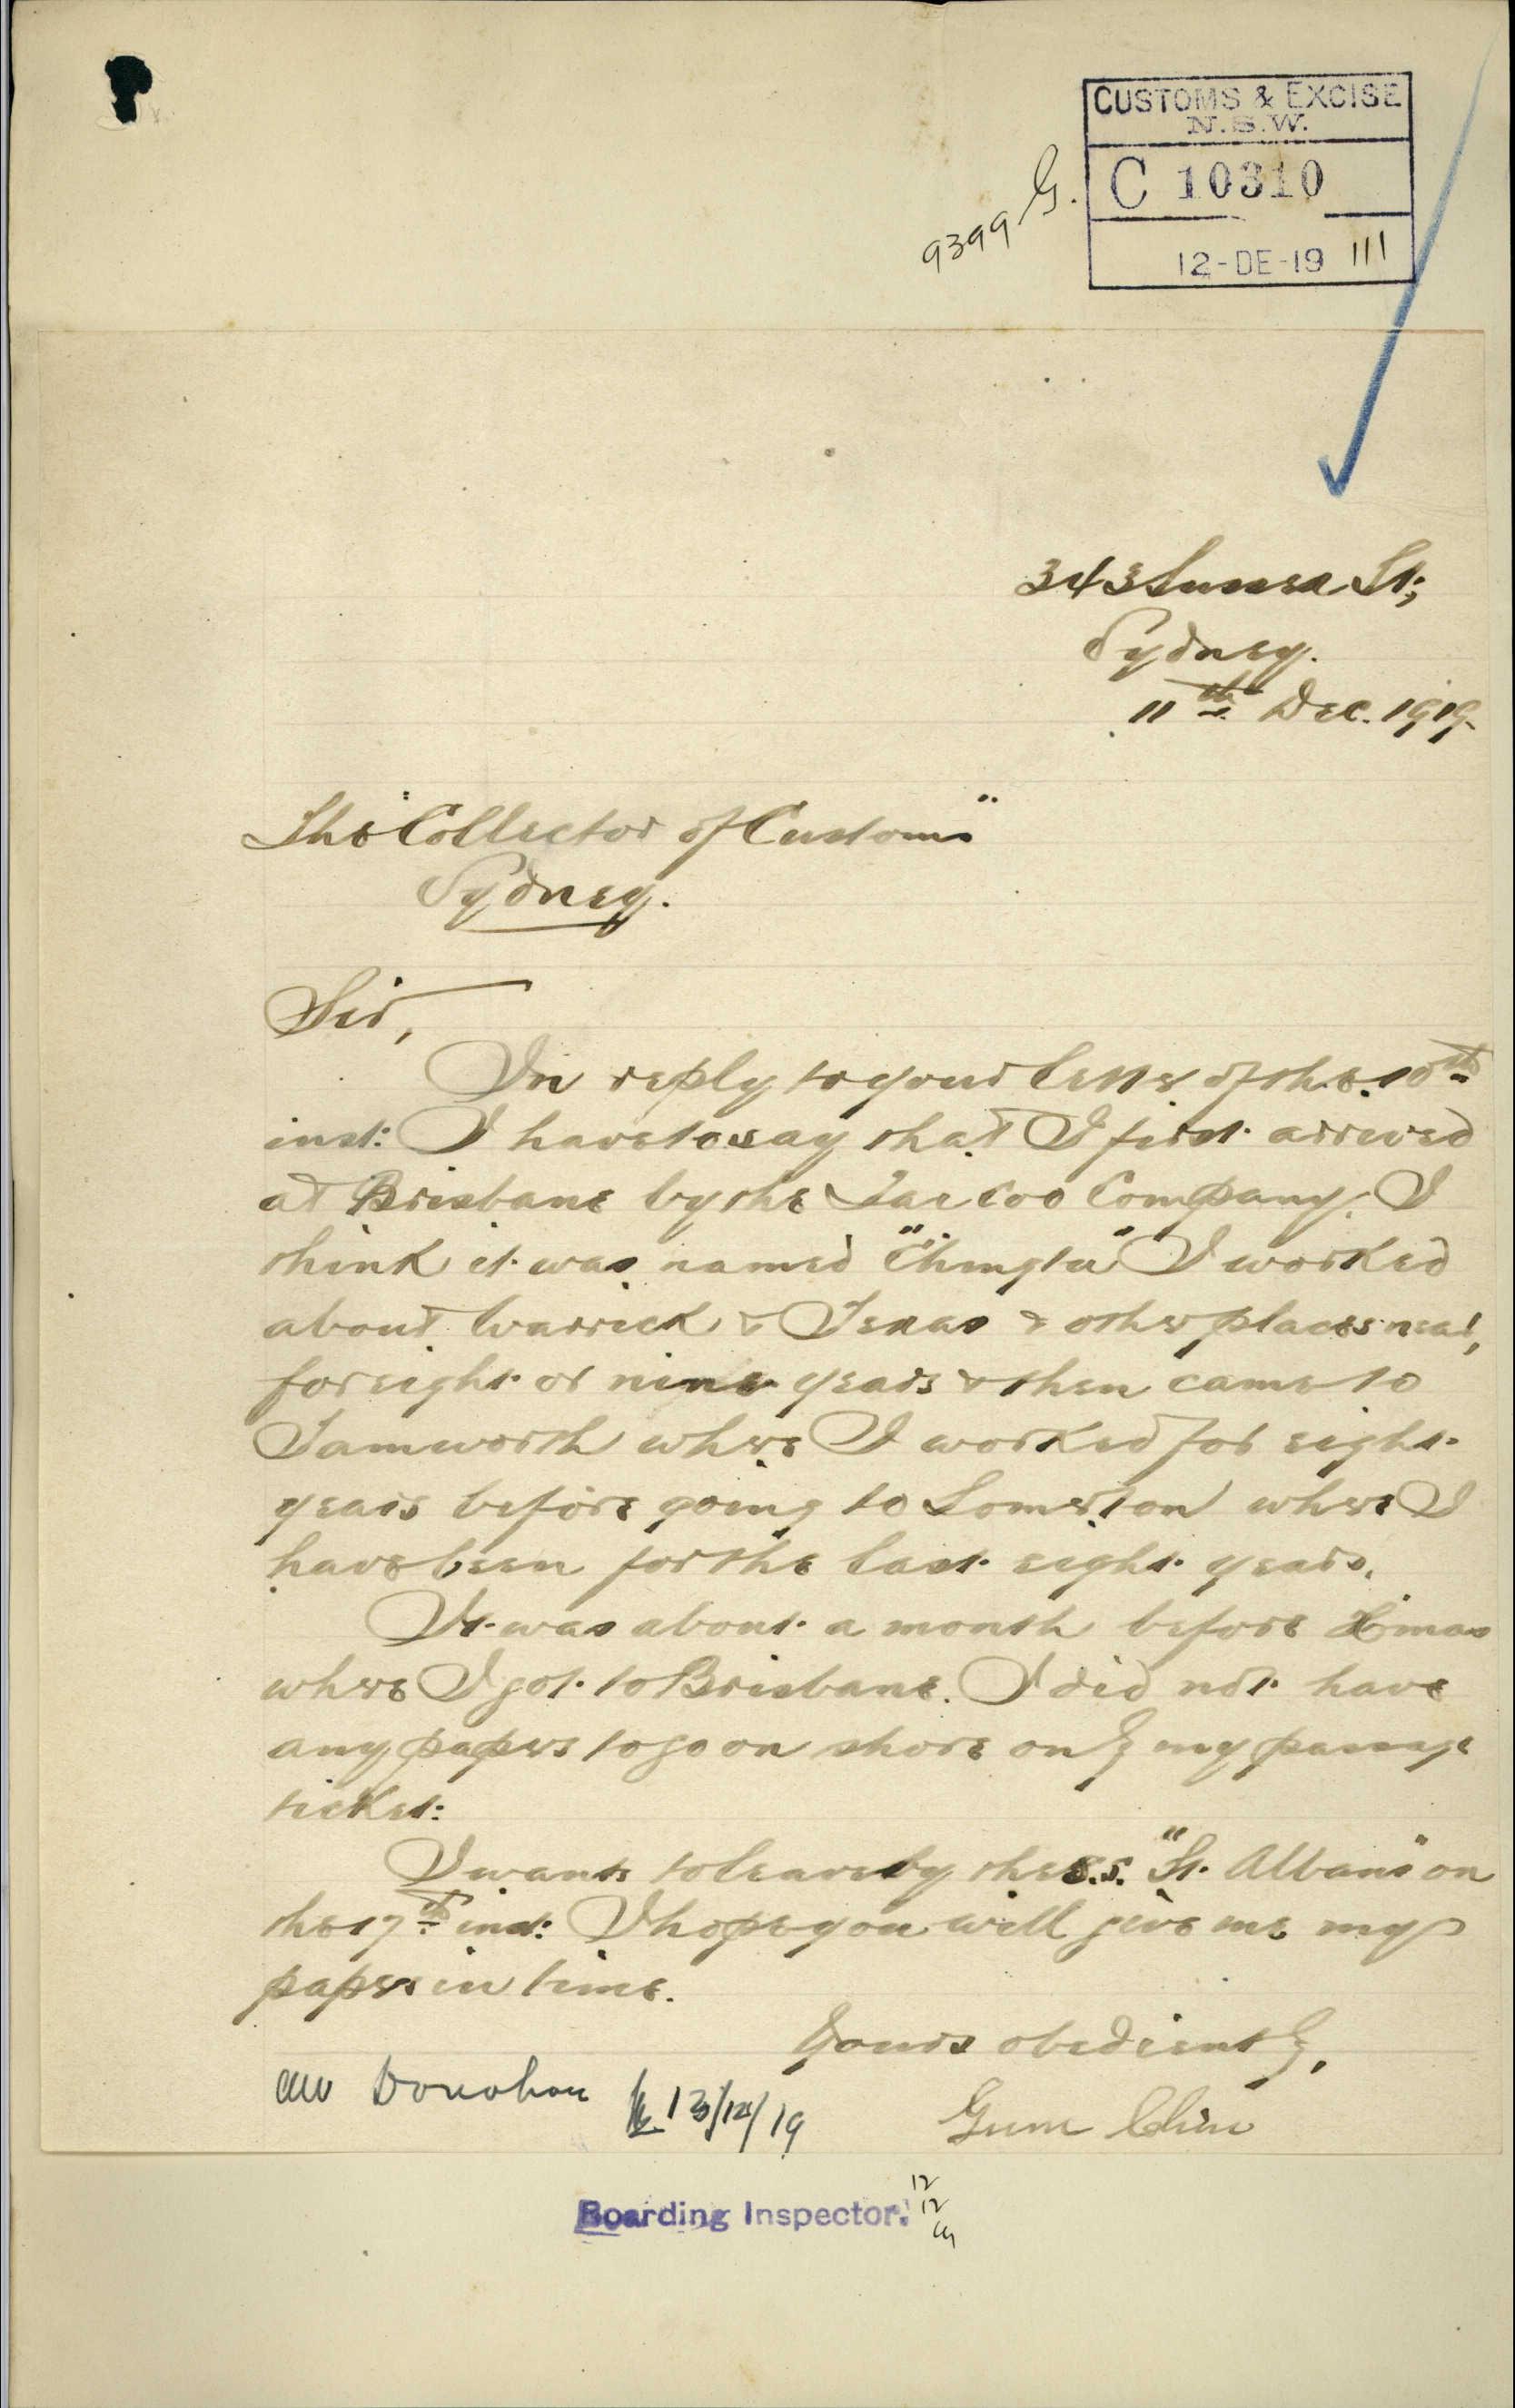 CUSTOMS & EXCISE
N.S.W.
C 10310
12-DE-19 111
9399 G.
343 Sussex St;
Sydney.
11th Dec. 1919.
The "Collector of Customs"
Sydney.
Sir,
In reply to your letter of the 10th
inst: I have to say that I first arrived
at Brisbane by the Company. I
think it was named "Chingtu" I worked
about Warrick & Texas & other places near,
for eight or nine years & then came to
Tamworth where I worked for eight
years before going to Somerton where I
have been for the last eight years.
It was about a month before Xmas
where I got to Brisbane. I did not have
any papers to go on shore only my passage
ticket:
I wants to leave by the S.S. "St. Albans" on
the 17th inst: I hope you will give me my
papers in time.
Yours obediently,
Gum Chin
Donohoe 13/12/19
Boarding Inspector.
12
12
19